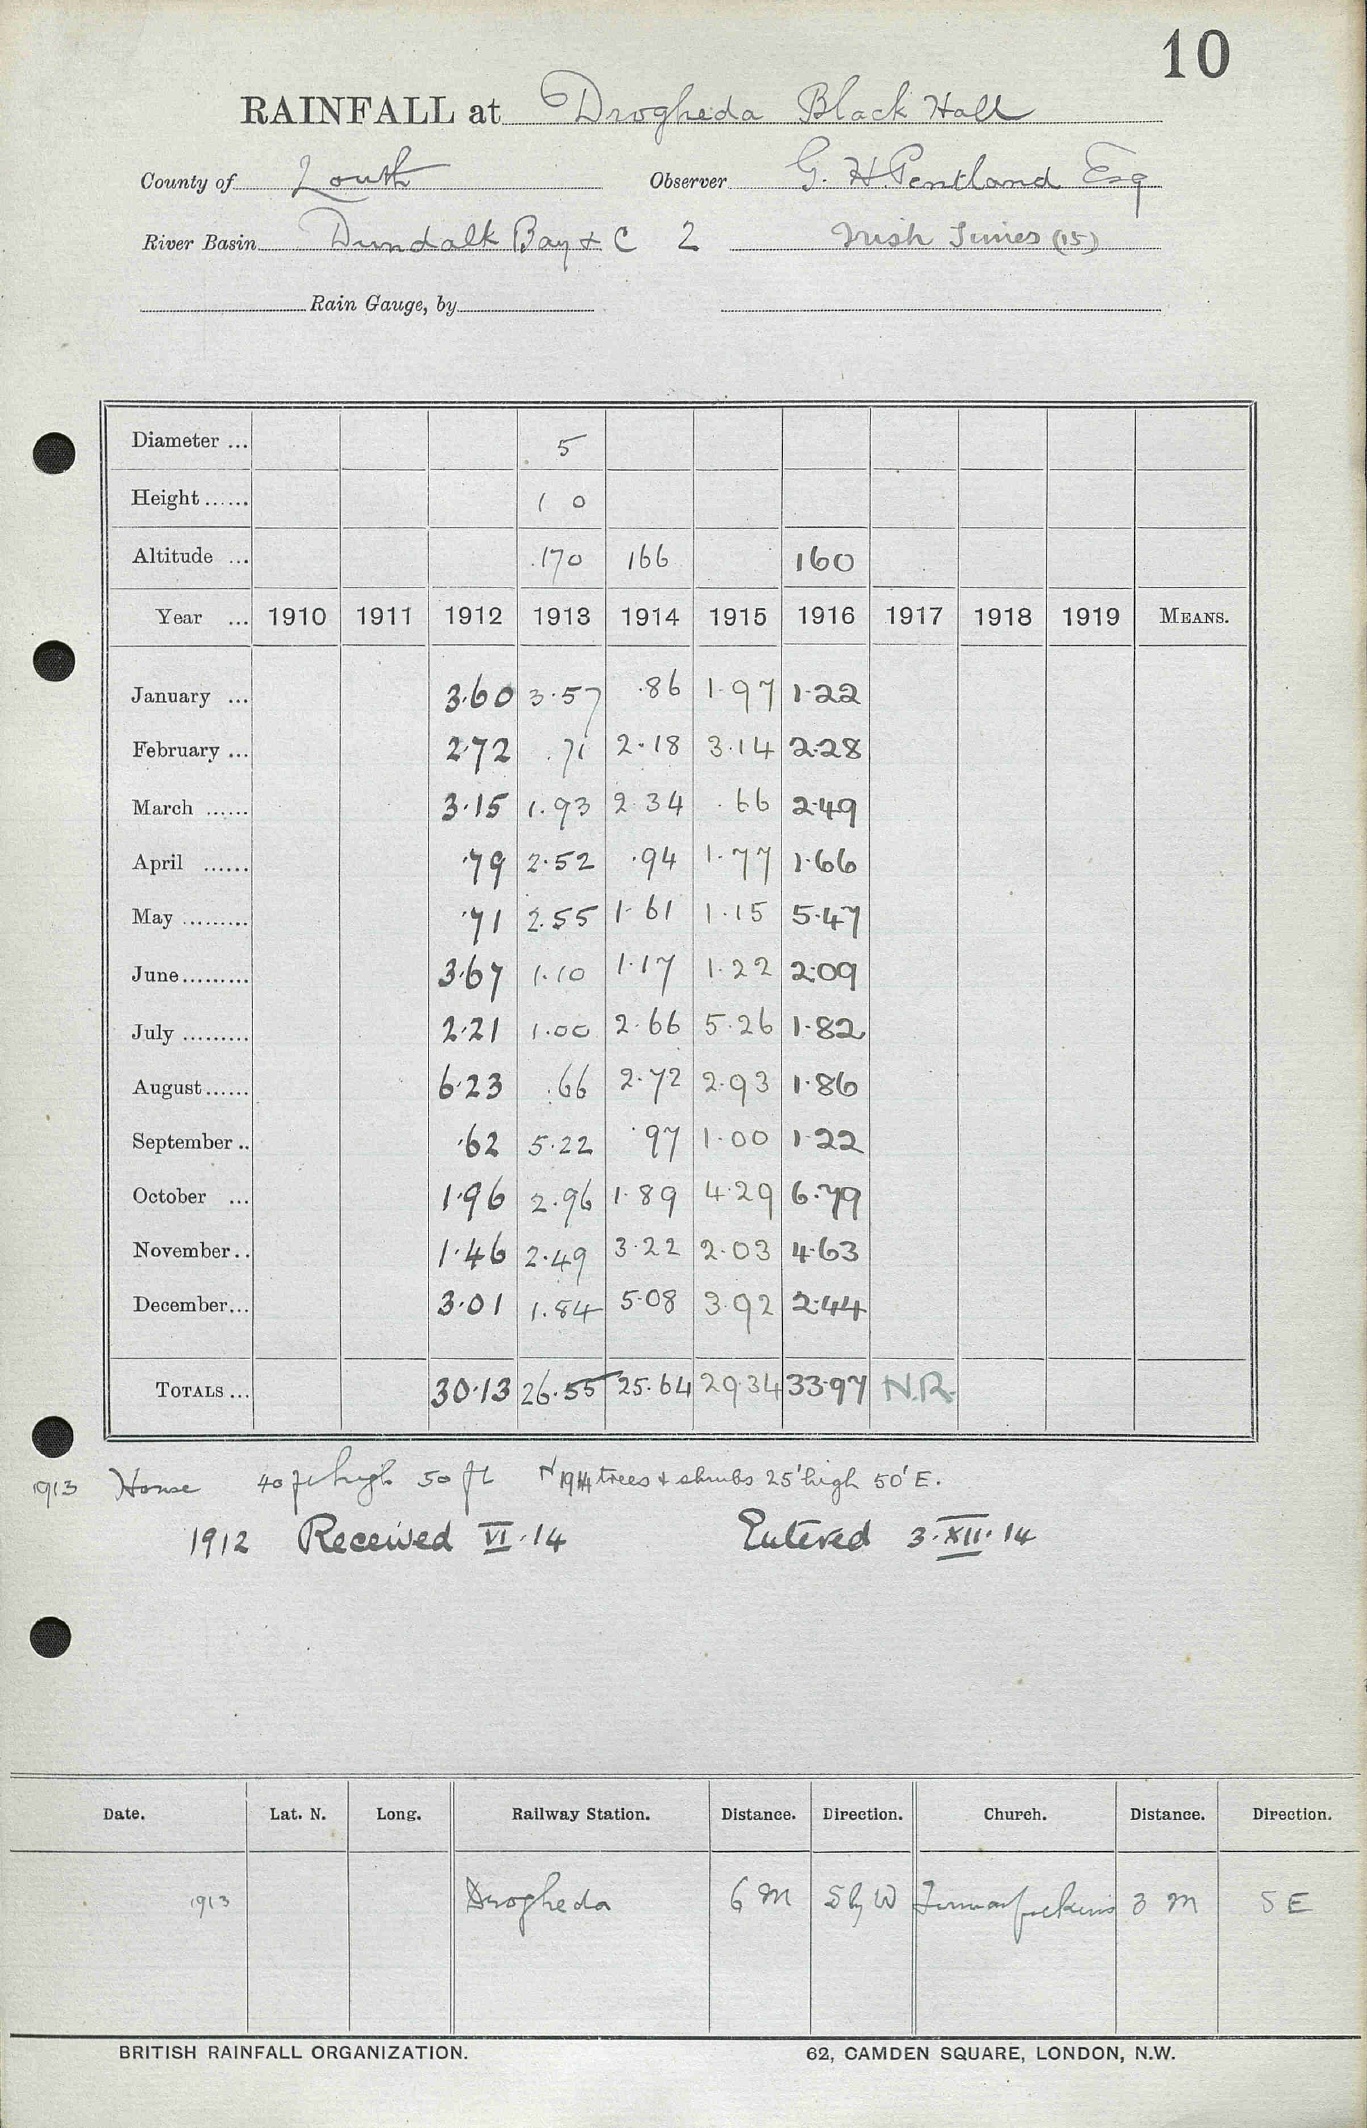 10
RAINFALL at Drogheda Black Hall
County of Louth Observer G. H. Pentland Esq
River Basin Dundalk Bay & C 2 Irish Times (15)
Rain Gauge, by
Diameter ... 5
Height ...... 1 0
Altitude ... 170 166 160
Year ... 1910 1911 1912 1913 1914 1915 1916 1917 1918 1919 MEANS.
January ... 3.60 3.57 .86 1.97 1.22
February ... 2.72 .71 2.18 3.14 2.28
March ...... 3.15 1.93 2.34 .66 2.49
April ...... .79 2.52 .94 1.77 1.66
May ......... .71 2.55 1.61 1.15 5.47
June......... 3.67 1.10 1.17 1.22 2.09
July ......... 2.21 1.00 2.66 5.26 1.82
August...... 6.23 .66 2.72 2.93 1.86
September .. .62 5.22 .97 1.00 1.22
October ... 1.96 2.96 1.89 4.29 6.79
November.. 1.46 2.49 3.22 2.03 4.63
December... 3.01 1.84 5.08 3.92 2.44
TOTALS ... 30.13 26.55 25.64 29.34 33.97 N.R.
1913 House 40 ft high 50 ft N 1914 trees & shrubs 25' high 50' E.
1912 Received VI.14 Entered 3.XII.14
Date. Lat. N. Long. Railway Station. Distance. Direction. Church. Distance. Direction.
1913 Drogheda 6 M S by W 3 M S E
BRITISH RAINFALL ORGANIZATION. 62, CAMDEN SQUARE, LONDON, N.W.